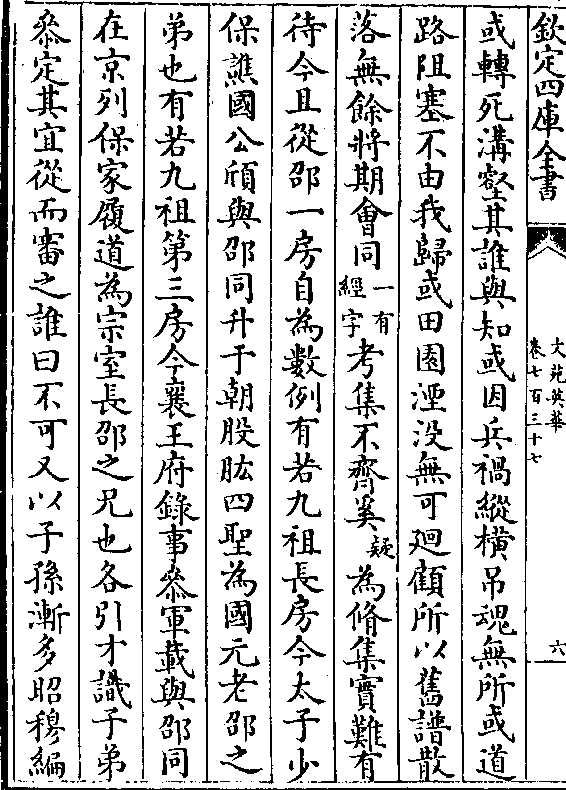 欽定四庫全書
文苑英華
卷七百三十七
六
或轉死溝壑其誰與知或因兵禍縱橫吊魂無所或道
路阻塞不由我歸或田園湮没無可廻顧所以舊譜散
落無餘將期會同一有經字考集不齊奚疑為脩集實難有
待今且從邵一房自為數例有若九祖長房今太子少
保譙國公頎與邵同升于朝股肱四聖為國元老邵之
弟也有若九祖第三房今襄王府錄事參軍載與邵同
在京列保家履道為宗室長邵之兄也各引才識子弟
叅定其宜從而審之誰曰不可又以子孫漸多昭穆編